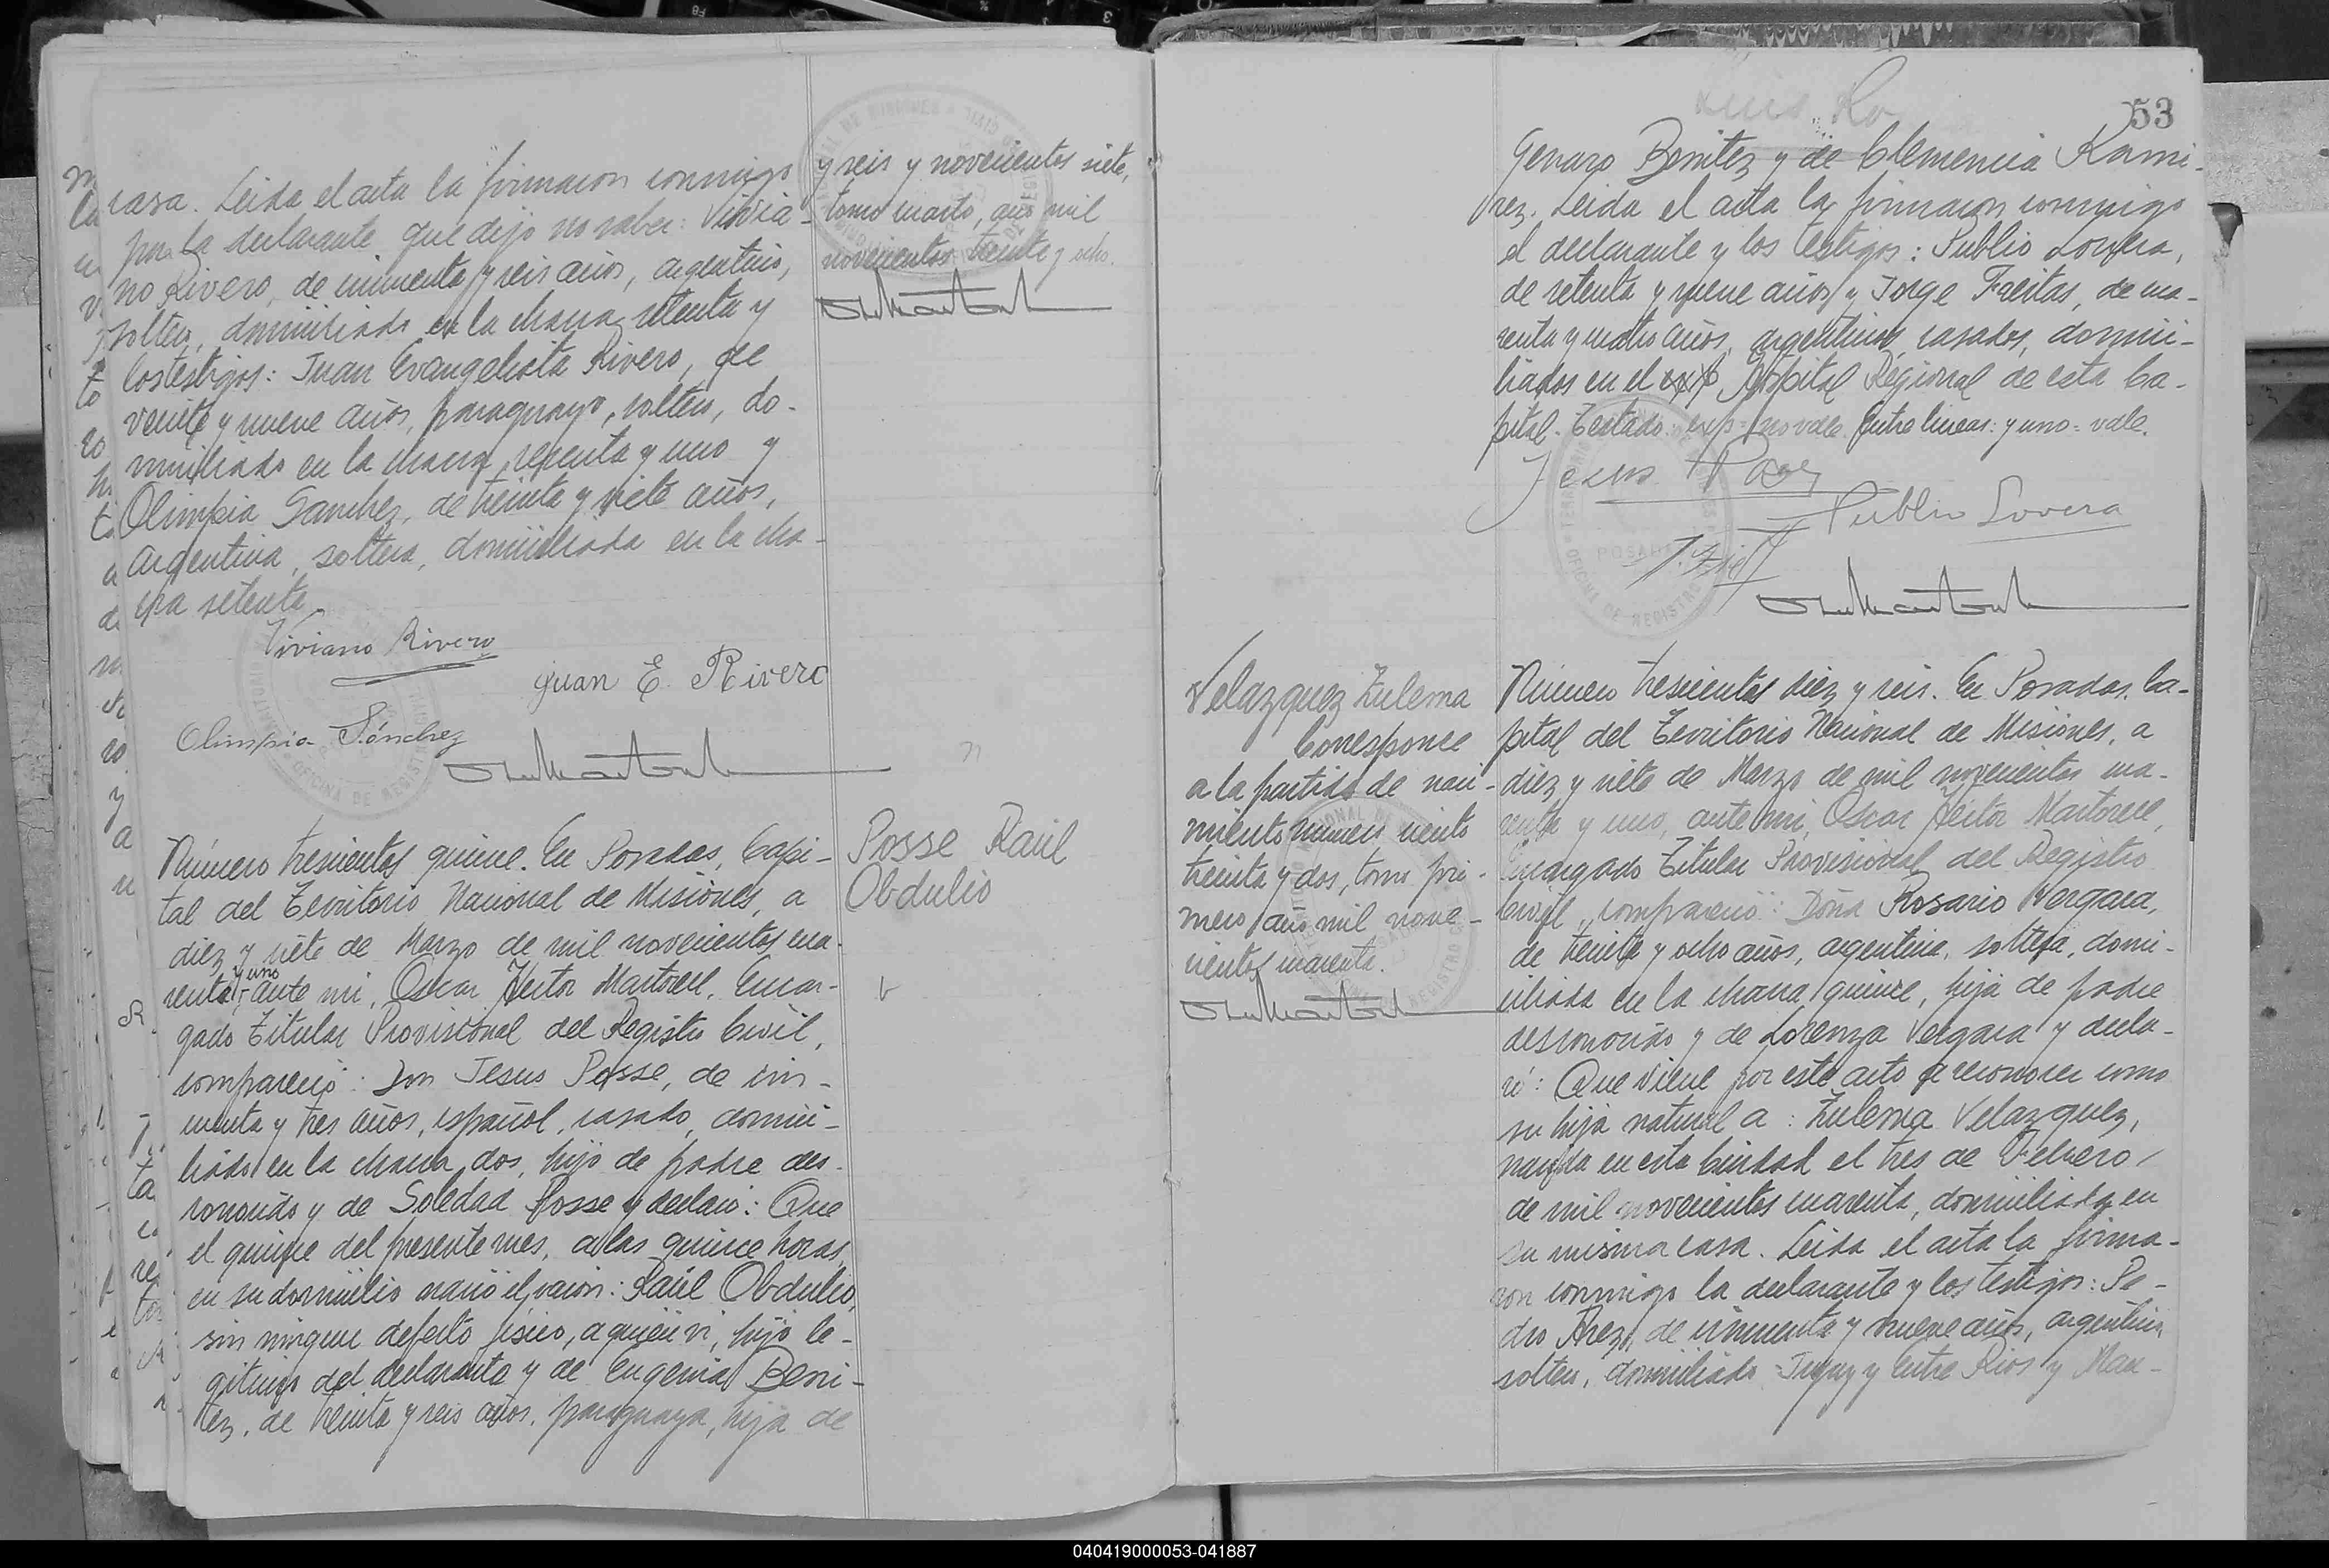 casa. Leida el acta la firmaron conmigo
por la declarante que dijo no saber: Vivia-
no Rivero, de cincuenta y seis años, argentino,
soltero, domiciliado en la chacra setenta y
los testigos: Juan Evangelista Rivero, de
veinte y nueve años, paraguayo, soltero, do-
miciliado en la chacra sesenta y uno y
Olimpia Sanchez, de treinta y siete años,
argentina, soltera, domiciliada en la cha-
cra setenta.
Viviano Rivero
Juan E. Rivero
Olimpia Sánchez
y seis y novecientos siete,
tomo cuarto, año mil
novecientos treinta y ocho.
Número trescientos quince. En Posadas, Capi-
tal del Territorio Nacional de Misiones, a
diez y siete de Marzo de mil novecientos cua-
y uno
renta, ante mi, Oscar Hector Martorell, Encar-
gado Titular Provisional del Registro Civil,
compareció: Don Jesus Posse, de cin-
cuenta y tres años, español, casado, domici-
liado en la chacra dos, hijo de padre des-
conocido y de Soledad Posse y declaró: Que
el quince del presente mes, a las quince horas,
en su domicilio nació el varón: Raúl Obdulio,
sin ningun defecto fisico, a quien vi, hijo le-
gitimo del declarante y de Eugenia Beni-
tez, de treinta y seis años, paraguaya, hija de
Posse Raúl
Obdulio
53
Genaro Benitez y de Clemencia Rami-
rez. Leida el acta la firmaron conmigo
el declarante y los testigos: Publio Lovera,
de setenta y nueve años y Jorge Freitas, de cua-
renta y cuatro años, argentinos, casados, domici-
liados en el Hospital Regional de esta Ca-
pital. Testado: no vale. Entre lineas: y uno: vale.
Jesus Posse
Publio Lovera
Velazquez Zulema
Corresponde
a la partida de naci-
miento numero ciento
treinta y dos, tomo pri-
mero año mil nove-
cientos cuarenta.
Número trescientos diez y seis. En Posadas, Ca-
pital del Territorio Nacional de Misiones, a
diez y siete de Marzo de mil novecientos cua-
renta y uno, ante mi, Oscar Hector Martorell,
Encargado Titular Provisional del Registro
Civil, compareció: Doña Rosario Vergara,
de treinta y ocho años, argentina, soltera, domi-
ciliada en la chacra quince, hija de padre
desconocido y de Lorenza Vergara y decla-
ró: Que viene por este acto a reconocer como
su hija natural a: Zulema Velazquez,
nacida en esta Ciudad el tres de Febrero
de mil novecientos cuarenta, domiciliada en
su misma casa. Leida el acta la firma-
ron conmigo la declarante y los testigos: Pe-
dro Arezo, de cincuenta y nueve años, argentino,
soltero, domiciliado Jujuy y Entre Rios y Man-
040419000053-041887